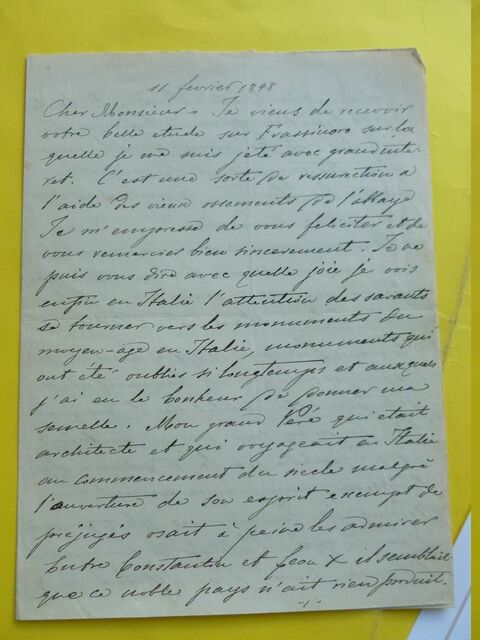 11 fevrier 1898
Cher Monsieur. Je viens de recevoir
votre belle etude sur Frassinoro sur la
quelle je me suis jeté avec grand inte
ret. C'est une sorte de ressurection a
l'aide des vieux ossements de l'abbaye
Je m'empresse de vous feliciter et de
vous remercier bien sincerement. Je ne
puis vous dire avec quelle joie je vois
enfin en Italie l'attention des savants
se tourner vers les monuments du
moyen-age en Italie, monuments qui
ont été oubliés si longtemps et auxquels
j'ai eu le bonheur de donner ma
semelle. Mon grand Péré qui était
architecte et qui voyageait en Italie
au commencement du siecle malgré
l'ouverture de son esprit exempt de
préjugés osait à peine les admirer
Entre Constantin et Leon X il semblait
que ce noble pays n'ait rien produit.